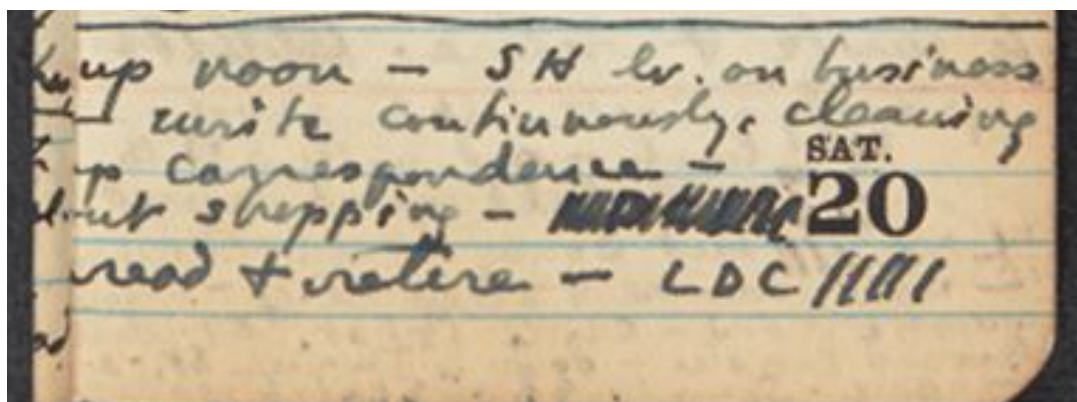 up noon — SH lv. on business
write continuously, cleaning
up correspondence —
SAT.
out shopping —
20
read & retire — LDC